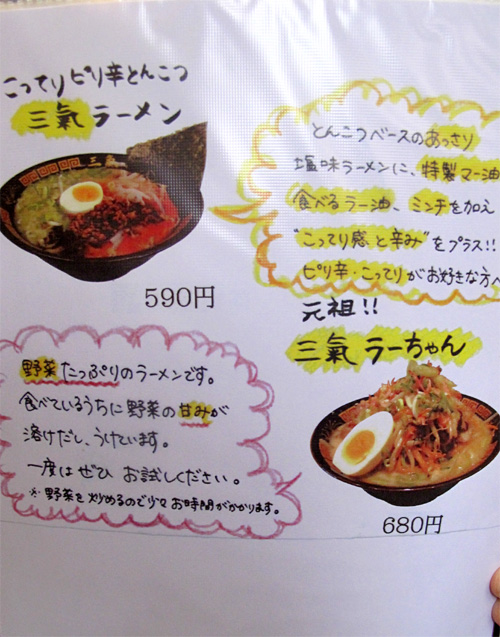 こってりピリ辛とんこつ
三氣ラーメン
三氣
590円
とんこつベースのあっさり
塩味ラーメンに、特製マー油
食べるラー油、ミンチを加え
"こってり感と辛み"をプラス!!
ピリ辛・こってりがお好きな方へ
元祖!!
三氣ラーちゃん
680円
野菜たっぷりのラーメンです。
食べているうちに野菜の甘みが
溶けだし、うけています。
一度はぜひお試しください。
※野菜を炒めるので少々お時間がかかります。